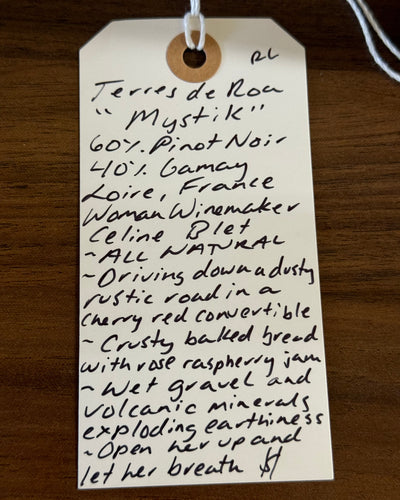 RL
Terres de Roa
"Mystik"
60% Pinot Noir
40% Gamay
Loire, France
Woman Winemaker
Celine Blet
~ALL NATURAL
~Driving down a dusty
rustic road in a
cherry red convertible
~ Crusty baked bread
with rose raspberry jam
~Wet gravel and
volcanic minerals
exploding earthiness
~Open her up and
let her breath